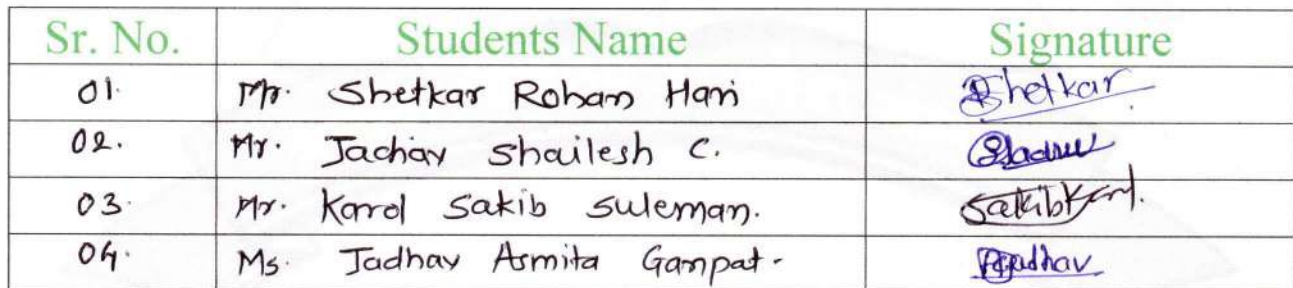 Sr. No. Students Name Signature
01. Mr. Shetkar Rohan Hari Shetkar
02. Mr. Jadhav Shailesh C.
03. Mr. Karol Sakib Suleman. Sakib
04. Ms. Jadhav Asmita Ganpat. Jadhav